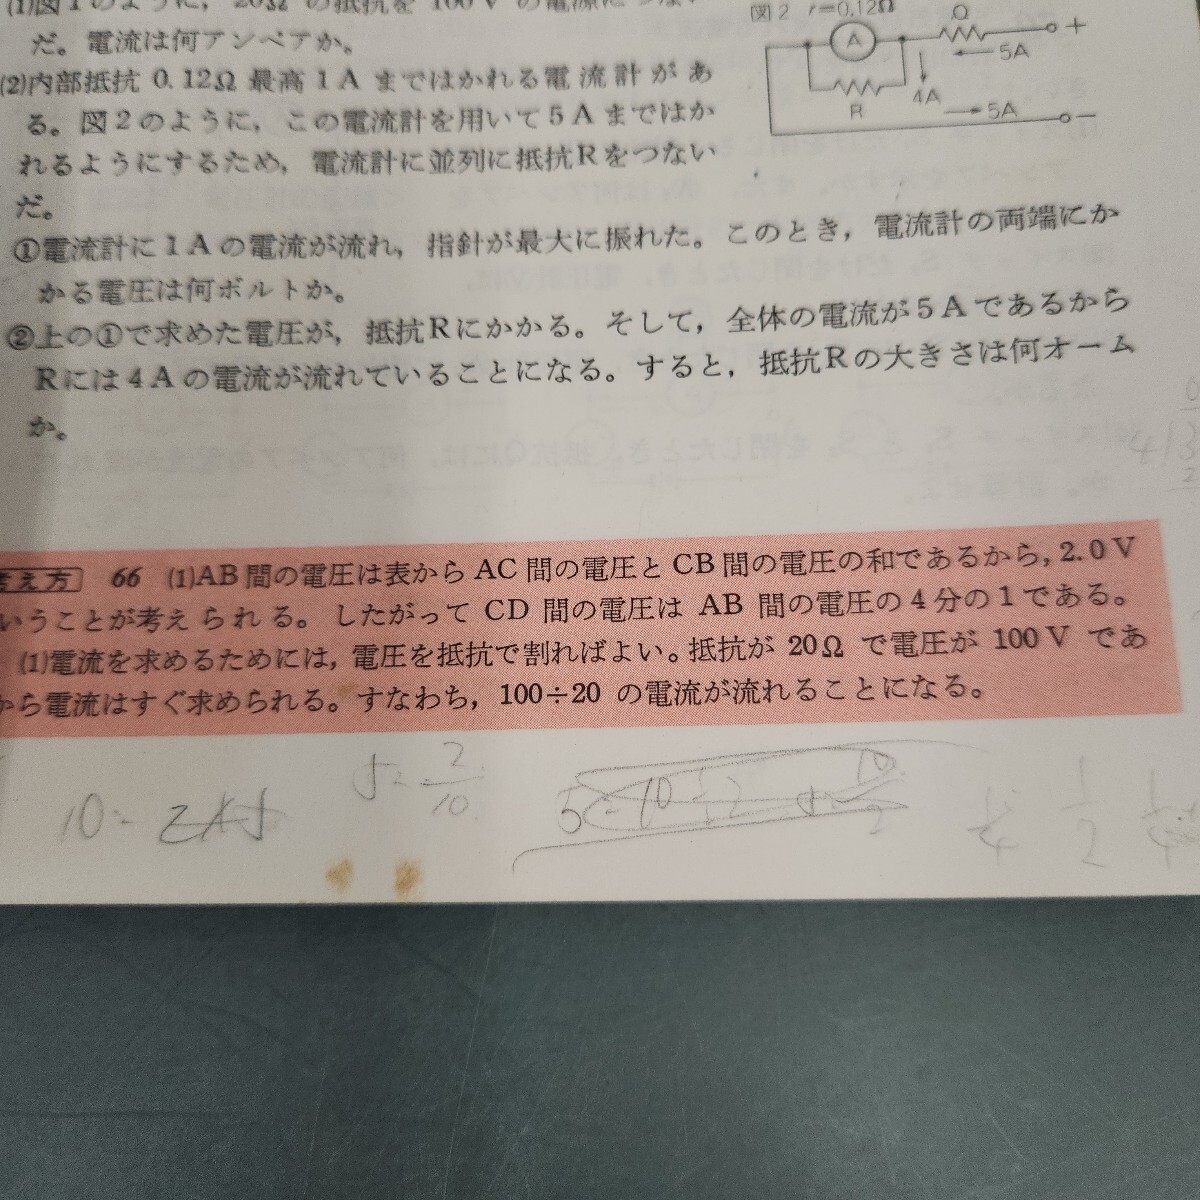 (1)図1のように, 20Ωの抵抗を 100 V の電源につない
だ。電流は何アンペアか。
(2)内部抵抗 0.12Ω 最高 1 A まではかれる電流計があ
る。図2のように, この電流計を用いて5Aまではか
れるようにするため, 電流計に並列に抵抗Rをつない
だ。
図2 r=0.12Ω
Q
A
+
5A
4A
R
5A
−
①電流計に1Aの電流が流れ, 指針が最大に振れた。このとき, 電流計の両端にか
かる電圧は何ボルトか。
②上の①で求めた電圧が, 抵抗Rにかかる。そして, 全体の電流が5Aであるから
Rには4Aの電流が流れていることになる。すると, 抵抗Rの大きさは何オーム
か。
考え方 66 (1)AB間の電圧は表から AC 間の電圧と CB 間の電圧の和であるから, 2.0 V
いうことが考えられる。したがって CD 間の電圧は AB 間の電圧の4分の1である。
(1)電流を求めるためには, 電圧を抵抗で割ればよい。抵抗が 20Ω で電圧が 100 V であ
から電流はすぐ求められる。すなわち, 100÷20 の電流が流れることになる。
2
10
1
4
1
2